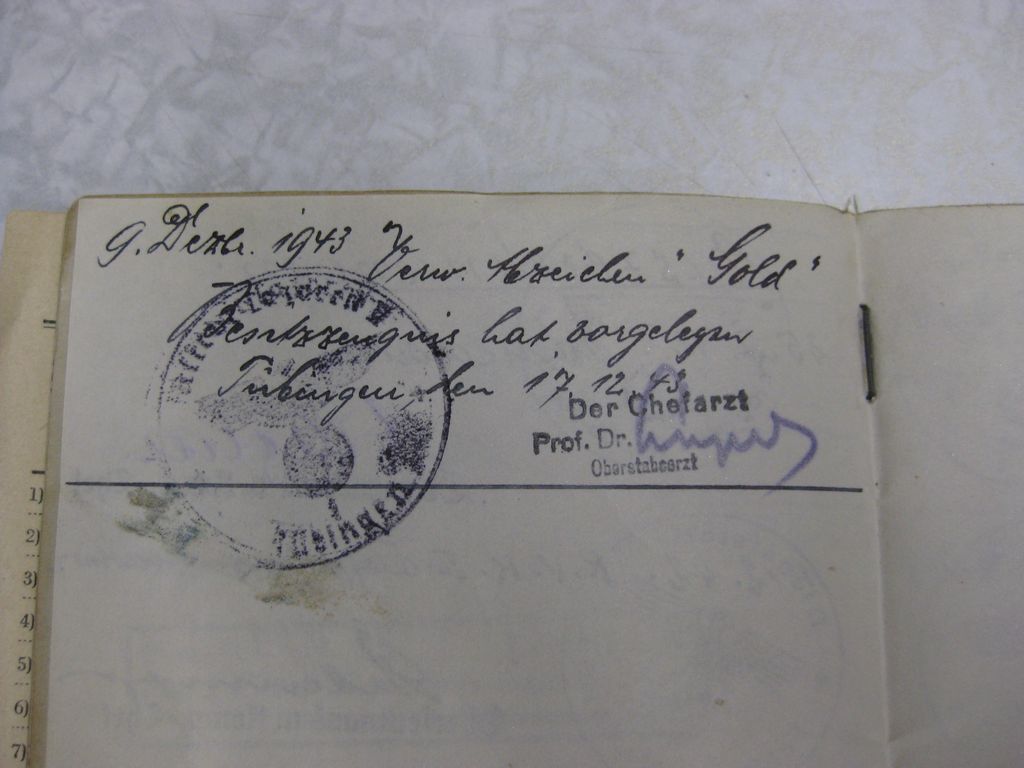 9. Dezbr. 1943 Verw. Abzeichen "Gold"
Besitzzeugnis hat vorgelegen
Tübingen, den 17.12.43
Der Chefarzt
Prof. Dr.
Oberstabsarzt
Tübingen
1)
2)
3)
4)
5)
6)
7)